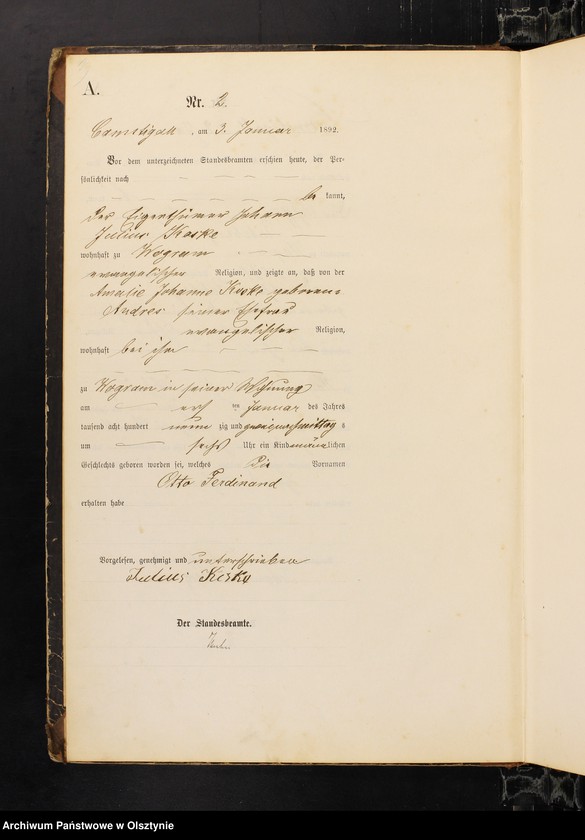 A.
Nr. 2.
Camstigall, am 3. Januar 1892.
Vor dem unterzeichneten Standesbeamten erschien heute, der Per-
sönlichkeit nach
be kannt,
der Eigenthümer Johann
Julius Koske
wohnhaft zu Wogram
evangelischer Religion, und zeigte an, daß von der
Amalie Johanne Koske geborenen
Andres seiner Ehefrau
evangelischer Religion,
wohnhaft bei ihm
zu Wogram in seiner Wohnung
am ersten Januar des Jahres
tausend acht hundert neunzig und zwei Vormittags
um sechs Uhr ein Kind männlichen
Geschlechts geboren worden sei, welches die Vornamen
Otto Ferdinand
erhalten habe
Vorgelesen, genehmigt und unterschrieben
Julius Koske
Der Standesbeamte.
Archiwum Państwowe w Olsztynie